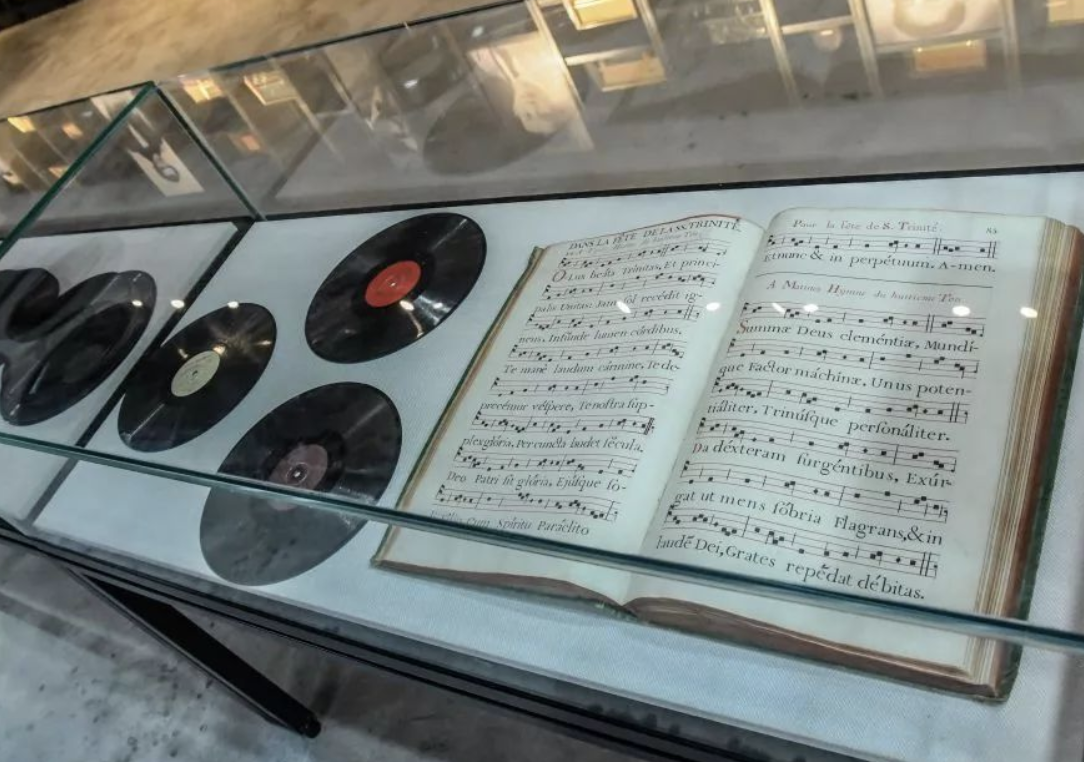 DANS LA FÊTE DE LA SS. TRINITÉ.
O Lux beata Trinitas, Et princi-
palis Unitas: Jam sol recédit ig-
neus, Infúnde lumen córdibus.
Te mane laudum cármine, Te de-
precémur véspere, Te nostra sup-
plex glória, Per cuncta laudet sǽcula.
Deo Patri sit glória, Ejúsque so-
Cum Spíritu Paráclito
Pour la fête de S. Trinité.
Et nunc & in perpétuum. A-men.
A Matines Hymne du huitieme Ton.
Summæ Deus cleméntiæ, Mundí-
que Factor máchinæ, Unus poten-
tiáliter, Trinúsque personáliter.
Da déxteram surgéntibus, Exúr-
gat ut mens sóbria Flagrans, & in
laudē Dei, Grates repēdat débitas.